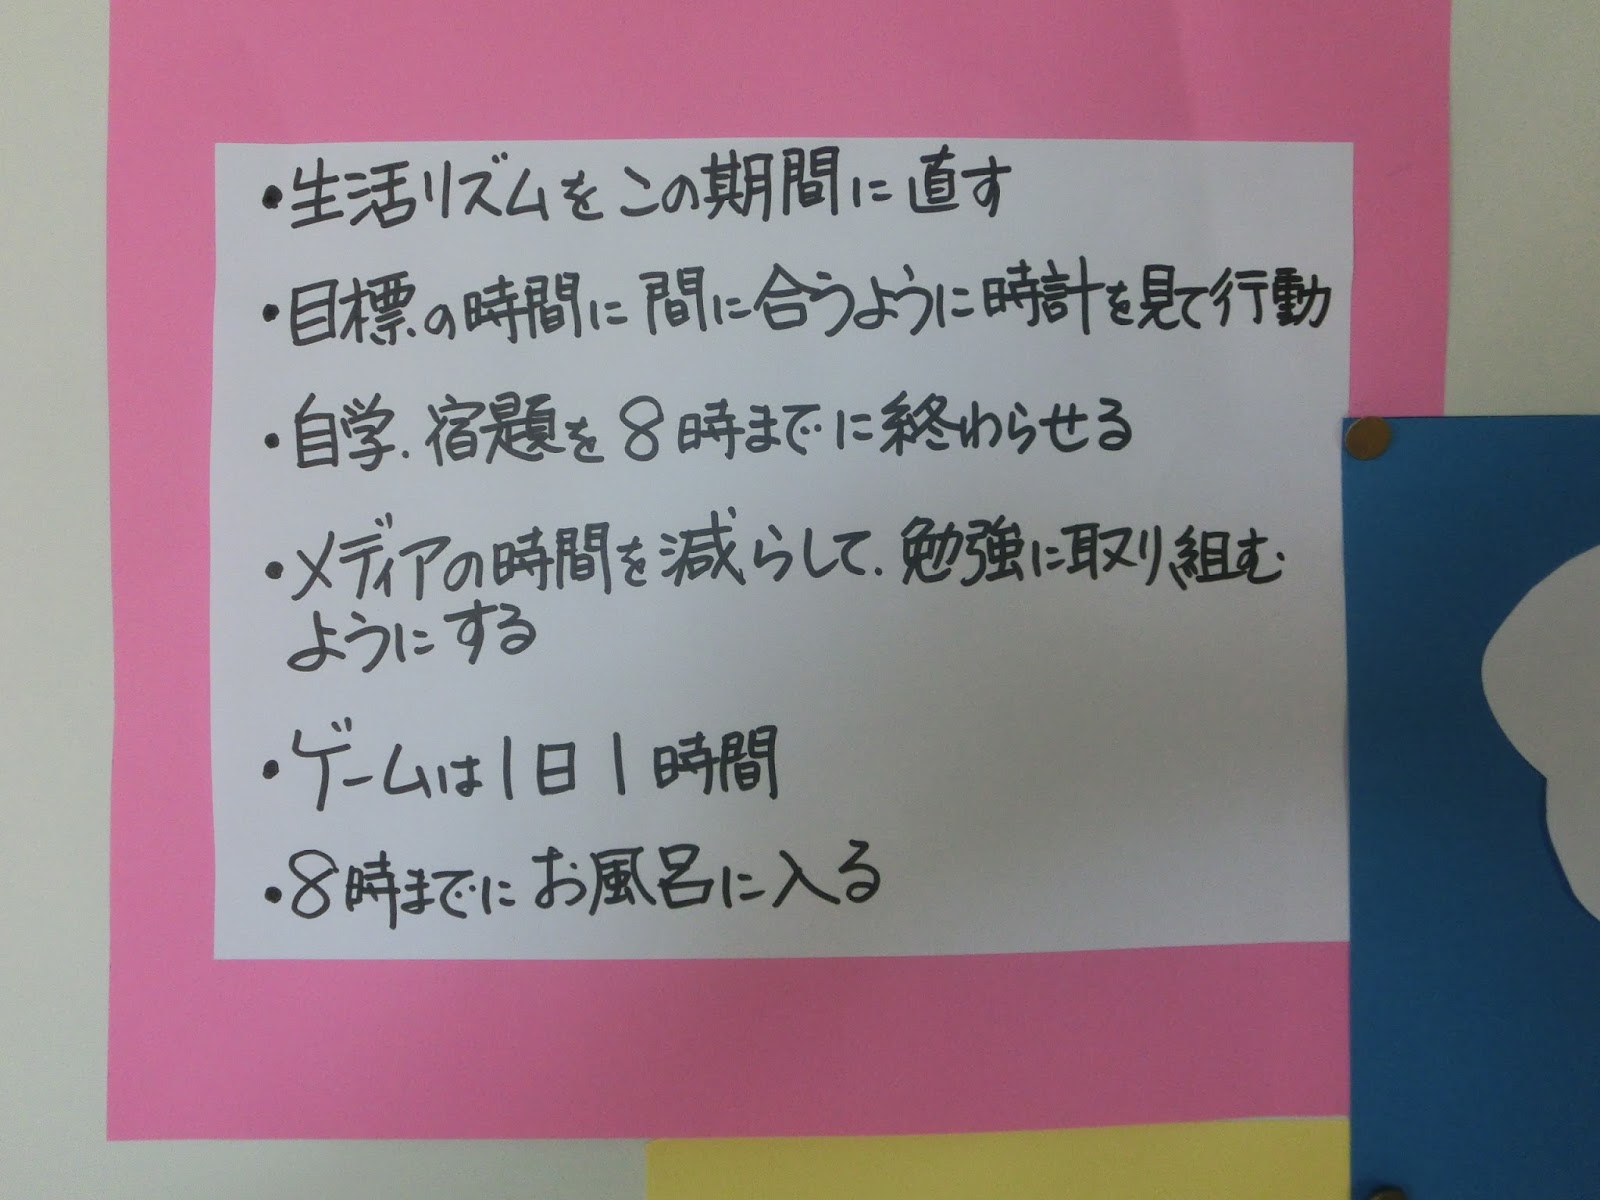 ・生活リズムをこの期間に直す
・目標の時間に間に合うように時計を見て行動
・自学、宿題を8時までに終わらせる
・メディアの時間を減らして、勉強に取り組む
ようにする
・ゲームは1日1時間
・8時までにお風呂に入る